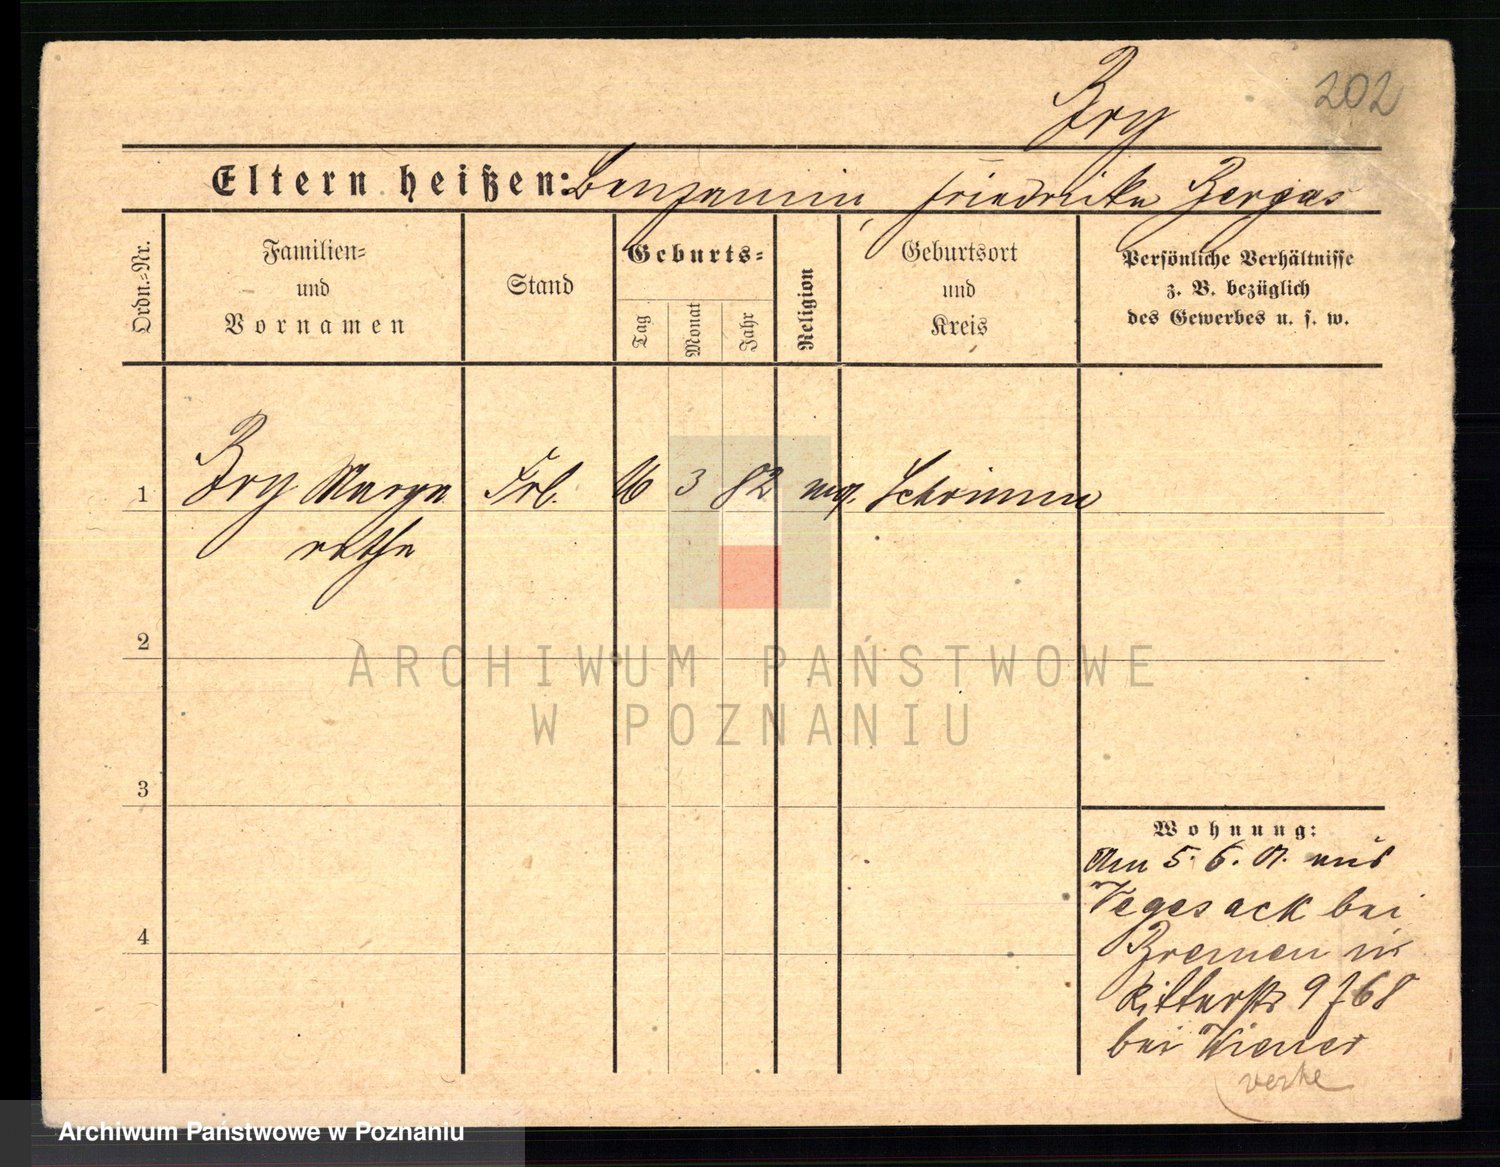 202
Bry
Eltern heißen: Benjamin, Friedricke Bergas
Ordn.-Nr.
Familien-
und
Vornamen
Stand
Geburts-
Tag
Monat
Jahr
Religion
Geburtsort
und
Kreis
Persönliche Verhältnisse
z. B. bezüglich
des Gewerbes u. s. w.
1 Bry Marga Frl. 16 3 82 Schrimm
rethe
2
3
4
ARCHIWUM PAŃSTWOWE
W POZNANIU
Wohnung:
Am 5. 6. 01. aus
Vegesack bei
Bremen in
Ritterstr 9
bei Wiener
Archiwum Państwowe w Poznaniu